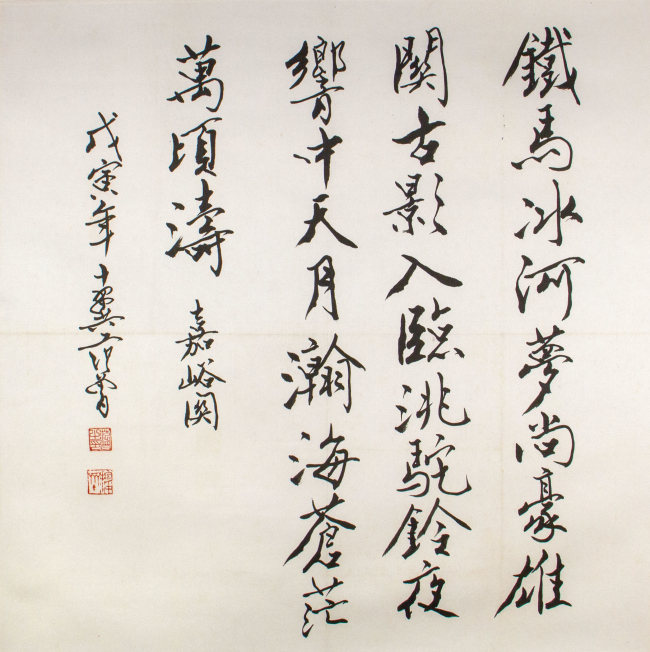 鐵馬冰河夢尚豪雄
関古影入臨洮駝鈴夜
響中天月瀚海蒼茫
萬頃濤 嘉峪関
戊寅年十翼范曾